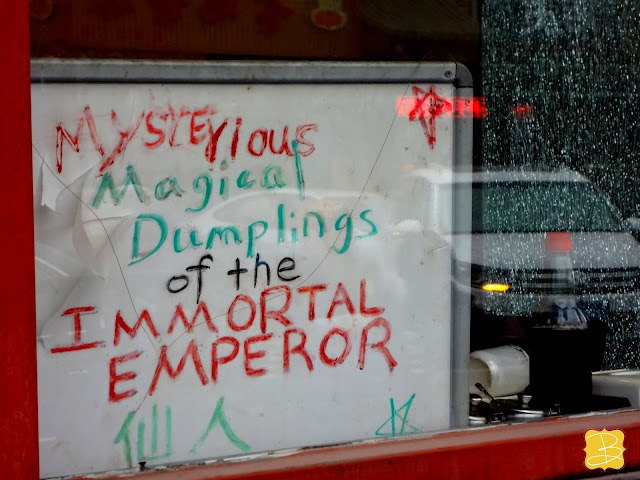 Mysterious
Magical
Dumplings
of the
IMMORTAL
EMPEROR
仙人